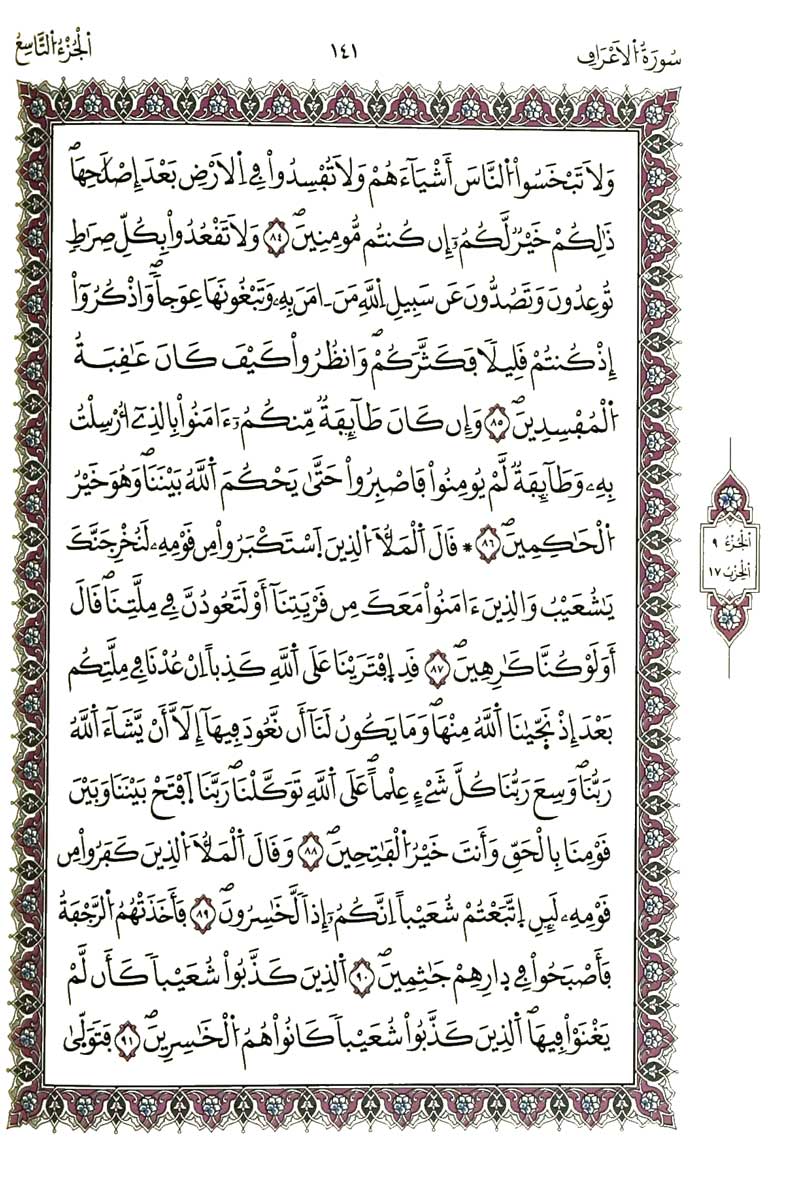 سُورَةُ الْأَعْرَافِ
١٤١
الْجُزْءُ التَّاسِعُ
وَلَا تَبْخَسُواْ النَّاسَ أَشْيَآءَهُمْ وَلَا تُفْسِدُواْ فِے اِلَارْضِ بَعْدَ إِصْلَٰحِهَاۖ
ذَٰلِكُمْ خَيْرٞ لَّكُمُۥٓ إِن كُنتُم مُّومِنِينَۖ ٨٤ وَلَا تَقْعُدُواْ بِكُلِّ صِرَٰطٖ
تُوعِدُونَ وَتَصُدُّونَ عَن سَبِيلِ اِللَّهِ مَنَ ـ امَنَ بِهِۦ وَتَبْغُونَهَا عِوَجاٗۖ وَاذْكُرُوٓاْ
إِذْ كُنتُمْ قَلِيلٗا فَكَثَّرَكُمْۖ وَانظُرُواْ كَيْفَ كَانَ عَٰقِبَةُ
اُلْمُفْسِدِينَۖ ٨٥ وَإِن كَانَ طَآئِفَةٞ مِّنكُمُۥٓ ءَامَنُواْ بِالذِےٓ أُرْسِلْتُ
بِهِۦ وَطَآئِفَةٞ لَّمْ يُومِنُواْ فَاصْبِرُواْ حَتَّىٰ يَحْكُمَ اَللَّهُ بَيْنَنَاۖ وَهُوَ خَيْرُ
اُلْحَٰكِمِينَۖ ٨٦ * قَالَ اَلْمَلَأُ اُلذِينَ اَسْتَكْبَرُواْ مِن قَوْمِهِۦ لَنُخْرِجَنَّكَ
يَٰشُعَيْبُ وَالذِينَ ءَامَنُواْ مَعَكَ مِن قَرْيَتِنَآ أَوْ لَتَعُودُنَّ فِے مِلَّتِنَاۖ قَالَ
أَوَلَوْ كُنَّا كَٰرِهِينَۖ ٨٧ قَدِ اِفْتَرَيْنَا عَلَى اَللَّهِ كَذِباً اِنْ عُدْنَا فِے مِلَّتِكُم
بَعْدَ إِذْ نَجَّيٰنَا اَللَّهُ مِنْهَاۖ وَمَا يَكُونُ لَنَآ أَن نَّعُودَ فِيهَآ إِلَّآ أَنْ يَّشَآءَ اَللَّهُ
رَبُّنَاۖ وَسِعَ رَبُّنَا كُلَّ شَےْءٍ عِلْماًۖ عَلَى اَللَّهِ تَوَكَّلْنَاۖ رَبَّنَا اَفْتَحْ بَيْنَنَا وَبَيْنَ
قَوْمِنَا بِالْحَقِّ وَأَنتَ خَيْرُ اُلْفَٰتِحِينَۖ ٨٨ وَقَالَ اَلْمَلَأُ اُلذِينَ كَفَرُواْ مِن
قَوْمِهِۦ لَئِنِ اِتَّبَعْتُمْ شُعَيْباً اِنَّكُمُۥٓ إِذاٗ لَّخَٰسِرُونَۖ ٨٩ فَأَخَذَتْهُمُ اُلرَّجْفَةُ
فَأَصْبَحُواْ فِے دِارِهِمْ جَٰثِمِينَۖ ٩٠ اَلذِينَ كَذَّبُواْ شُعَيْباٗ كَأَن لَّمْ
يَغْنَوْاْ فِيهَاۖ اَلذِينَ كَذَّبُواْ شُعَيْباٗ كَانُواْ هُمُ اُلْخَٰسِرِينَۖ ٩١ فَتَوَلَّىٰ
الْجُزْءُ ٩
الْحِزْبُ ١٧